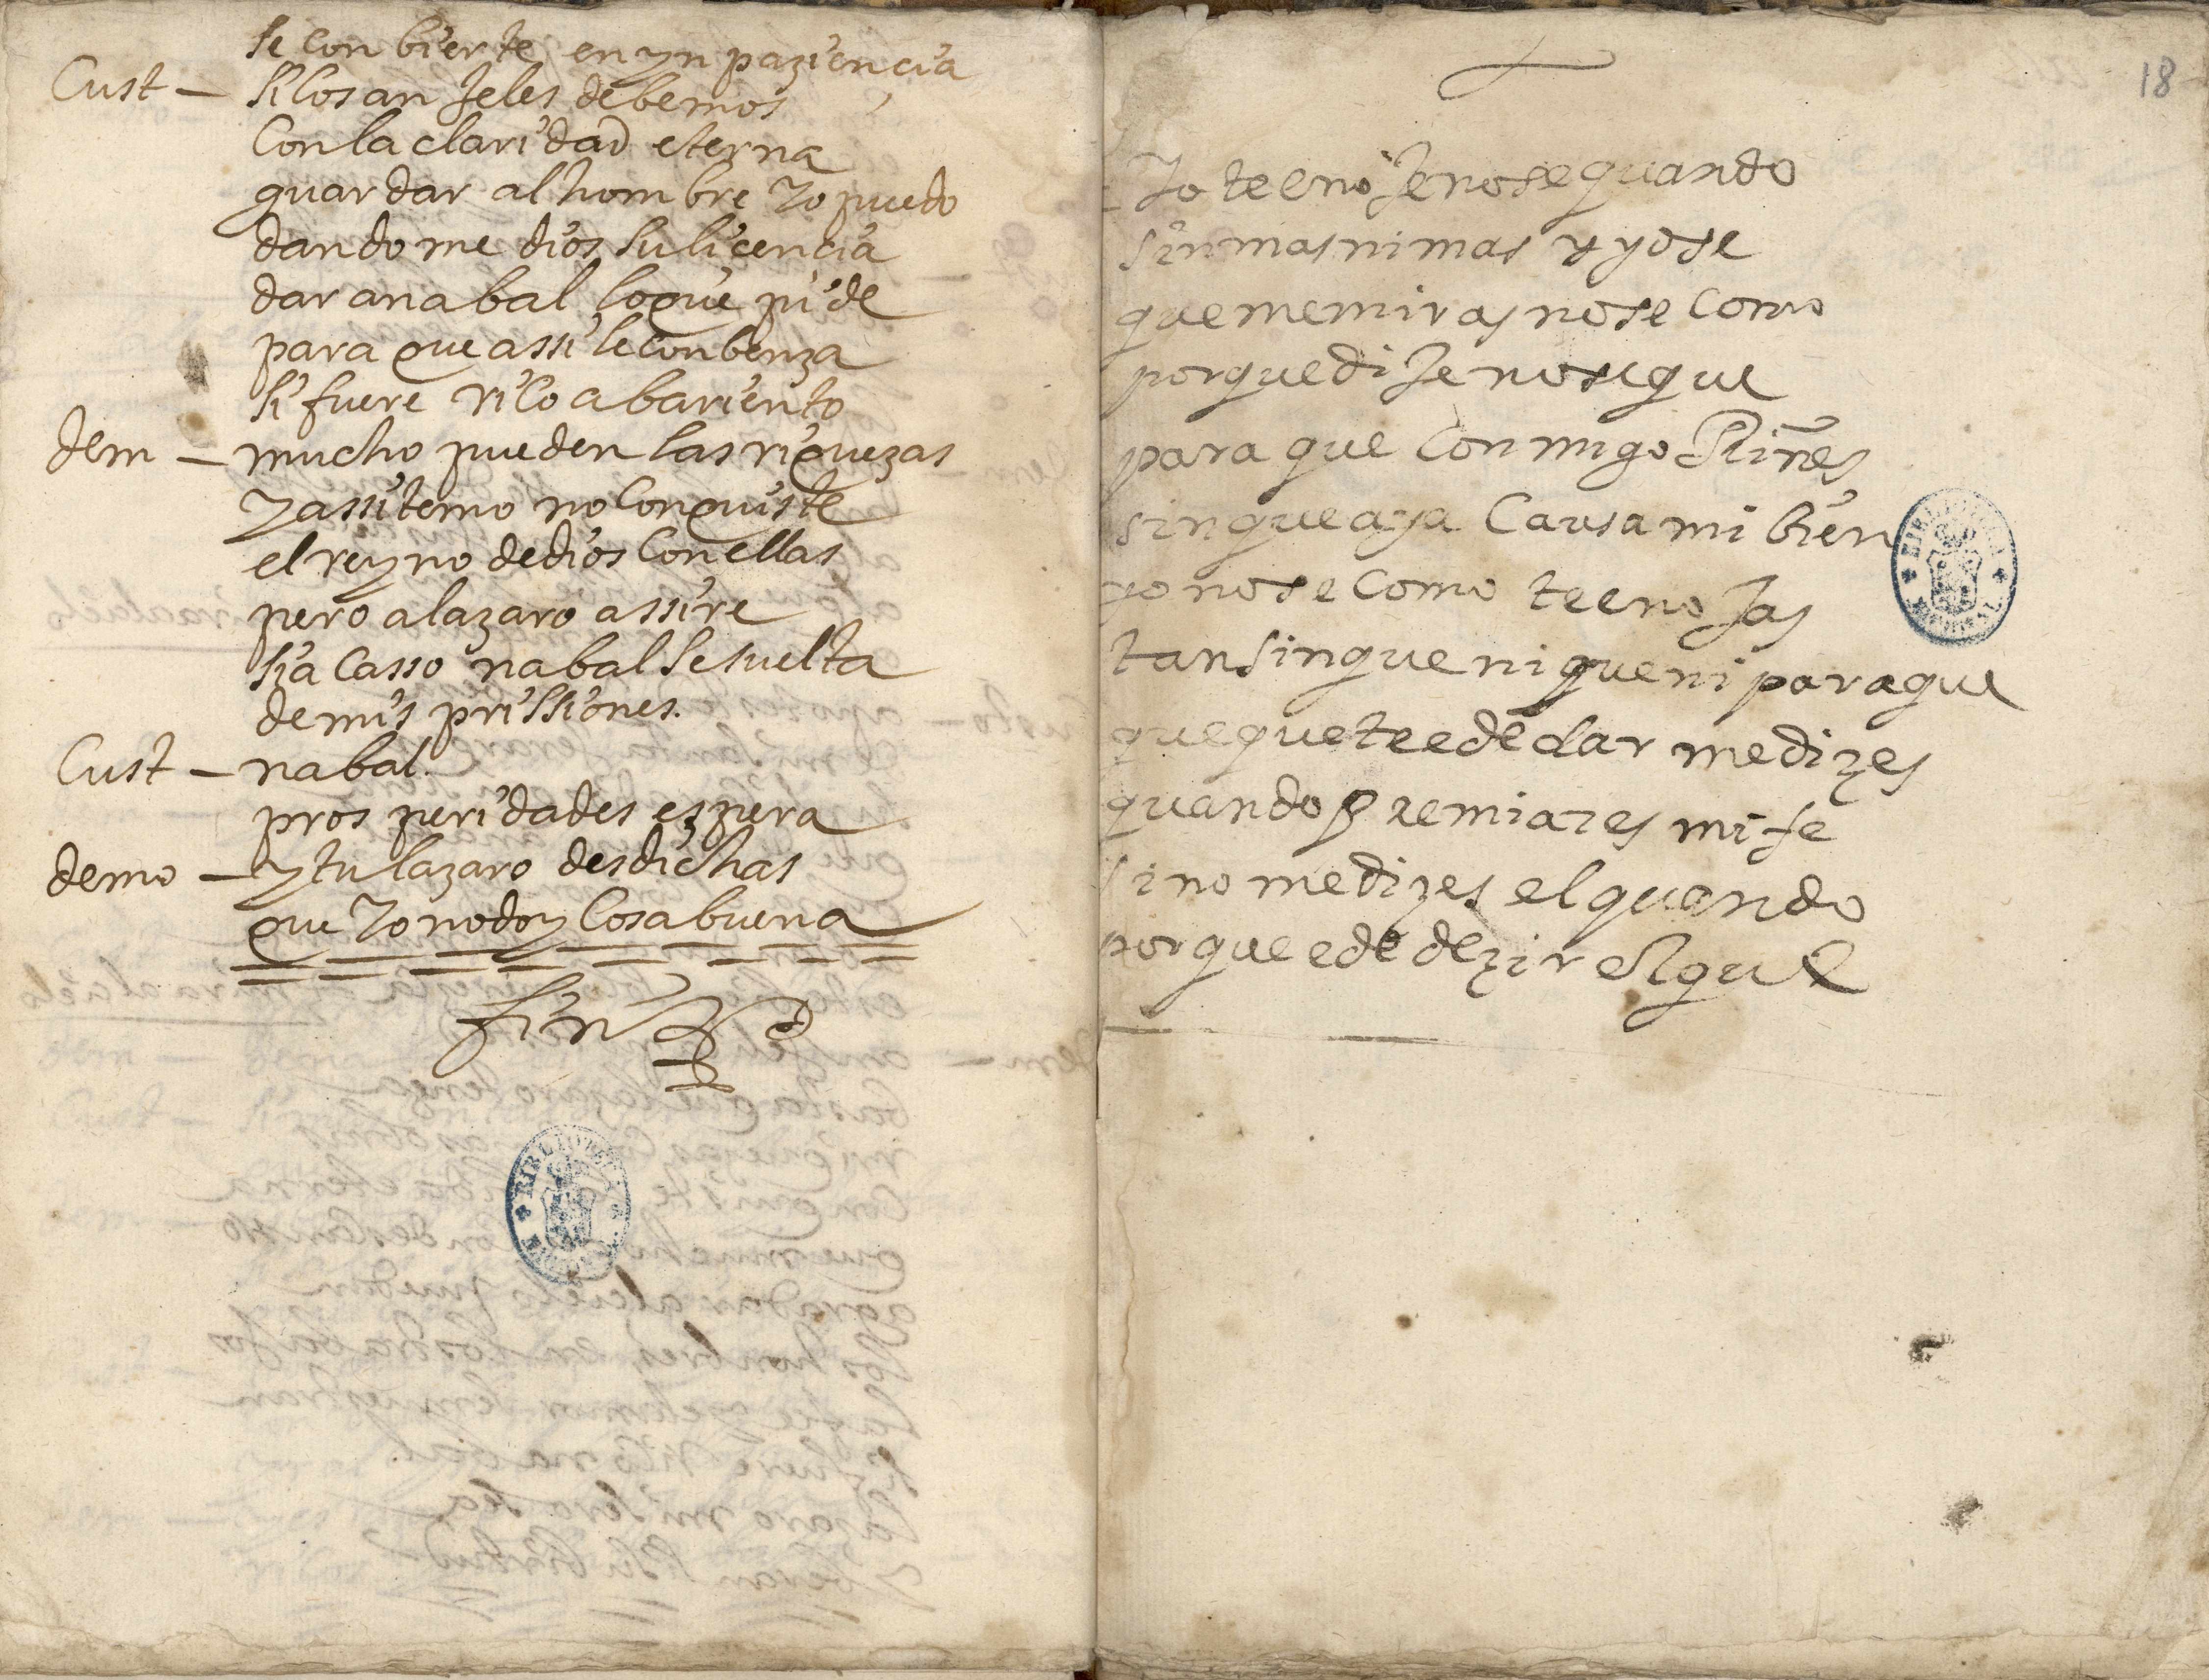 se con bierte en yn paziencia
Cust — si los an jeles debemos
Con la claridad eterna
guardar al hombre Yo puedo
dando me dios su licencia
dar a nabal lo que pide
para que assi le conbenza
si fuere rico abariento
dem — mucho pueden las riquezas
y assi temo no conquiste
el reyno de dios con ellas
pero a lazaro assire
si a Casso nabal se suelta
de mis prissiones.
Cust — nabal.
prosperidades espera
demo — y tu lazaro desdichas
que Yo no doy Cosa buena
fin
18
Yo te enoje no se quando
sin mas ni mas y yo se
que me miras no se Como
porque dije no se que
para que Conmigo Riñes
sin que aya Causa mi bien
yo no se Como te enojas
tan sin que ni que ni para que
que que te e de dar me dizes
quando premiares mi fe
si no me dizes el quando
porque e de dezir el que